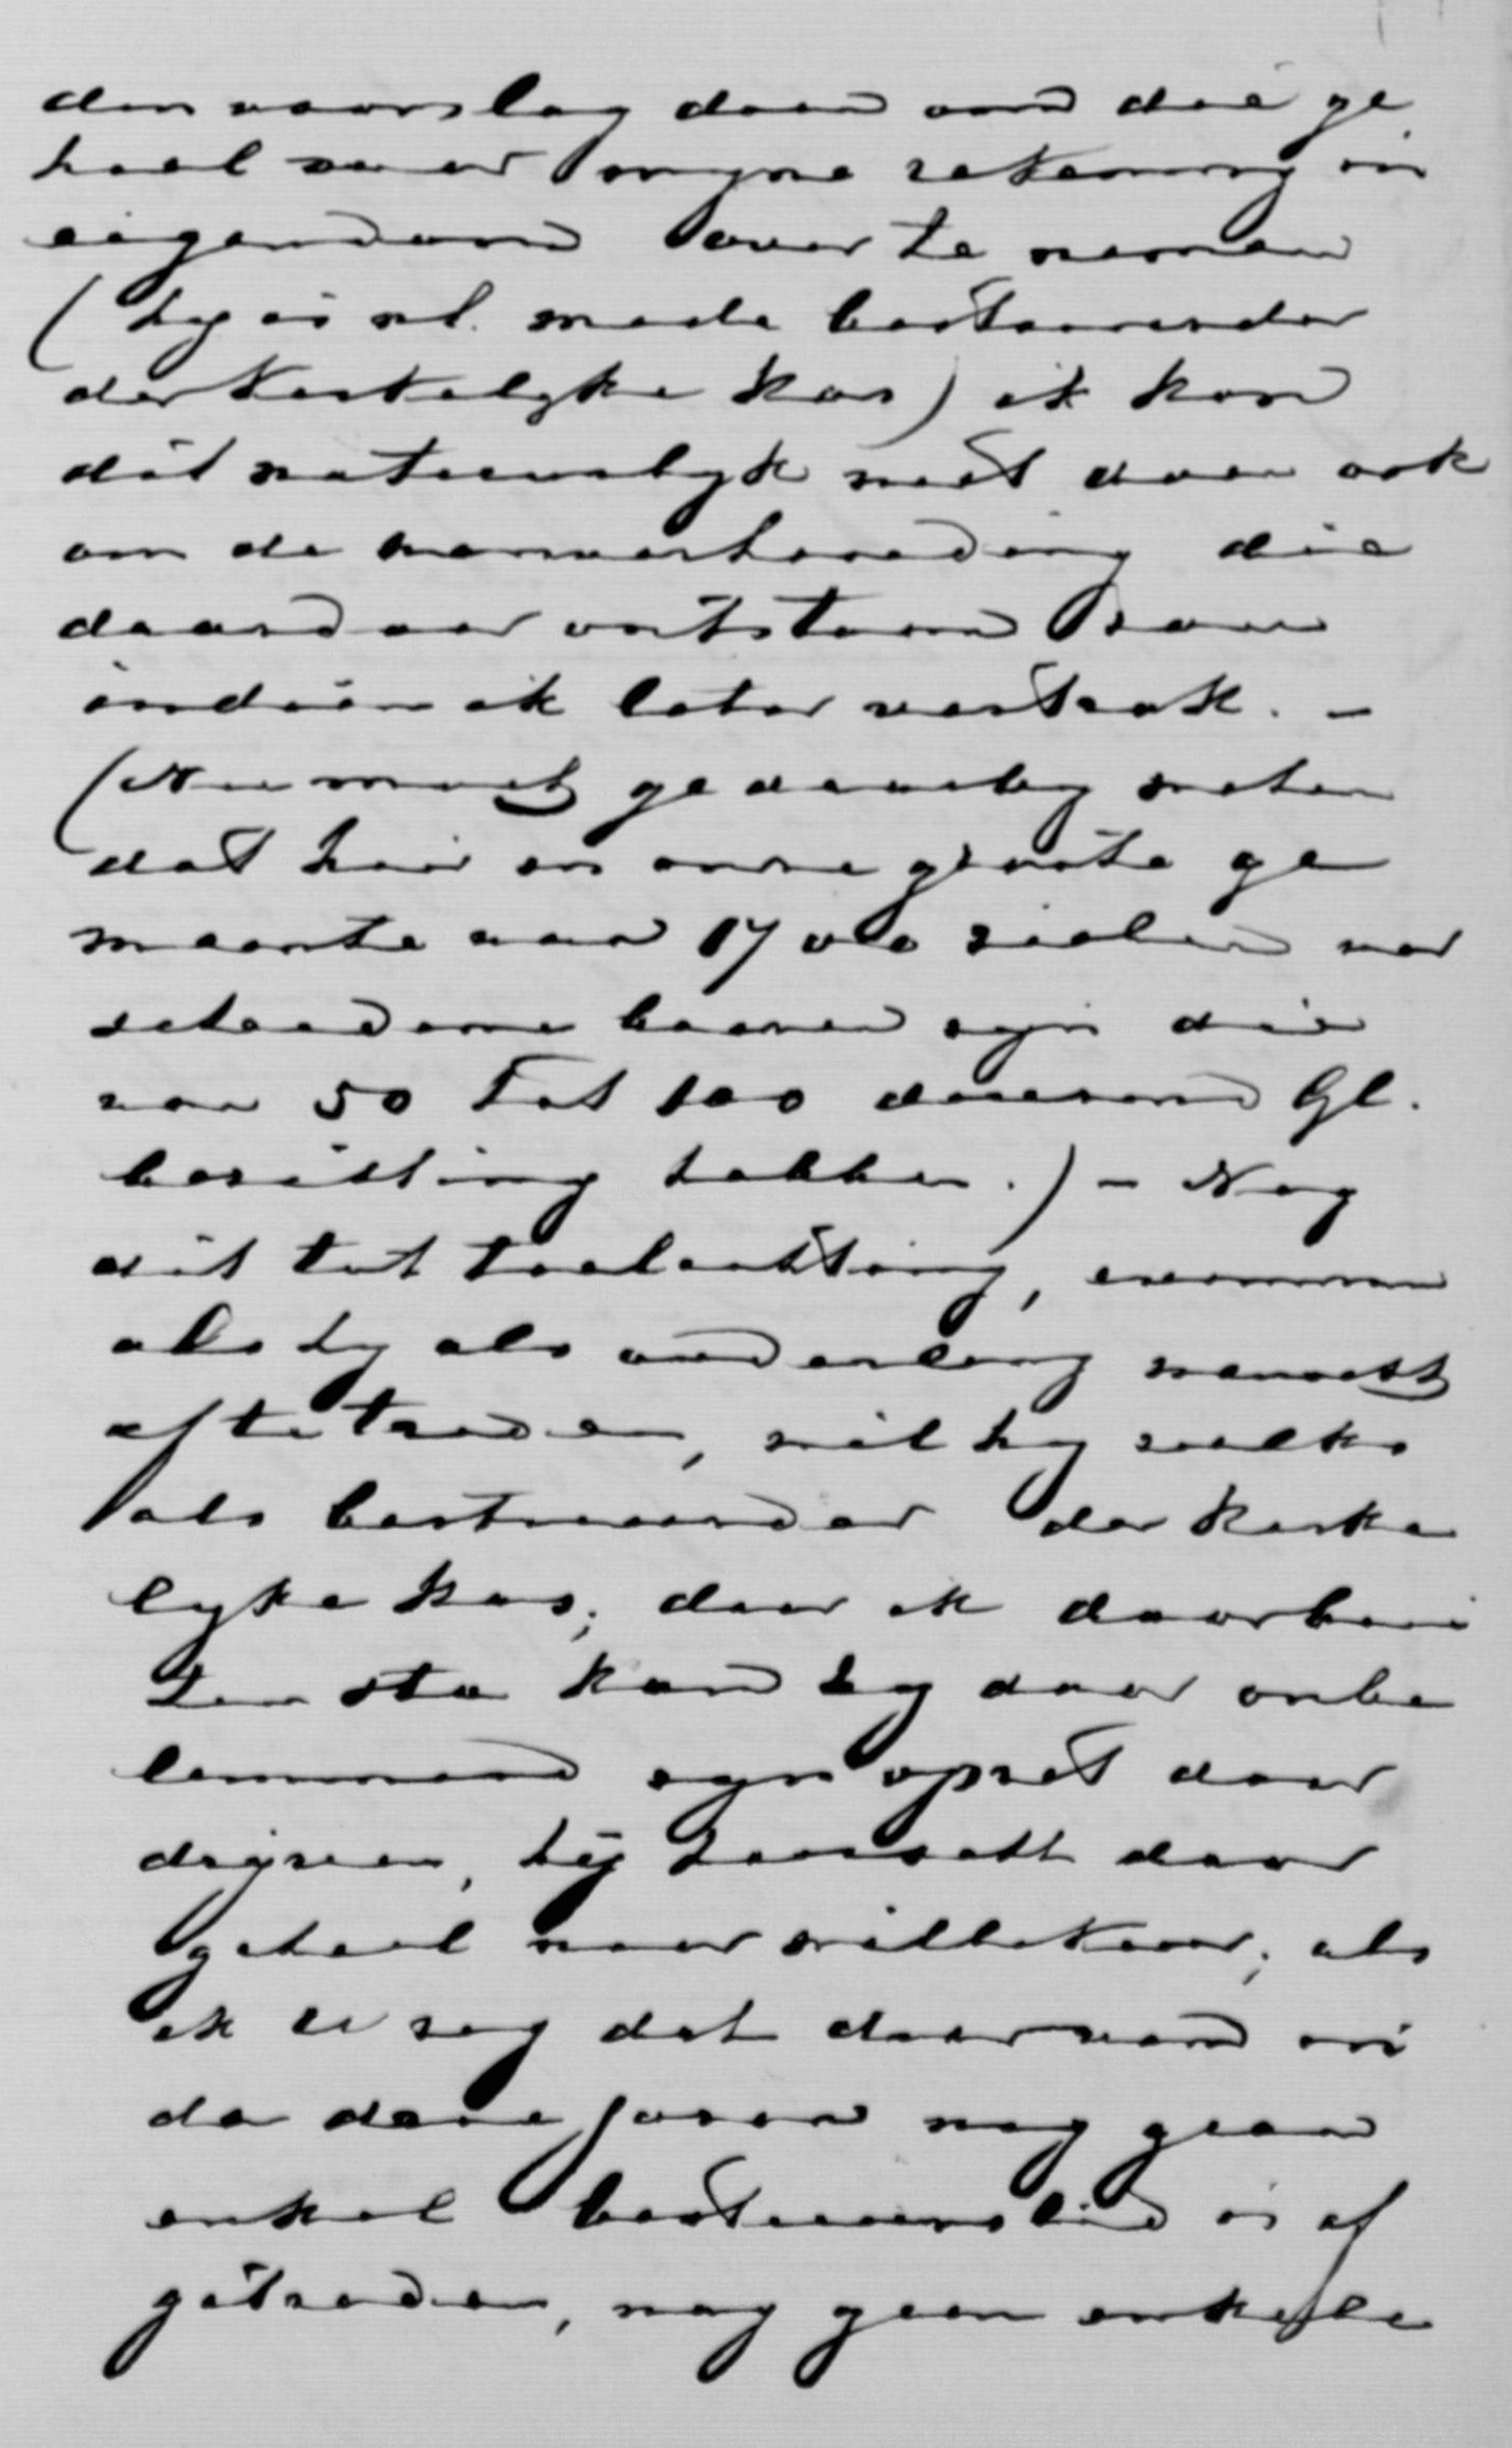 den voorslag doen om die ge
heel voor myne rekening in
eigendom over te nemen
(hy is nl. mede bestuurder
der kerkelyke kas) ik kon
dit natuurlyk niet doen ook
om de verhouding die
daardoor ontstaan zou
indien ik later vertrok. -
(Nu moet ge daarby weten
dat hier in onze groote ge
meente van 1700 zielen ver
scheidene boeren zyn die
van 50 tot 100 duizend Gl.
bezitting hebben.) - Nog
dit tot toelichting, evenmin
als hy als ouderling verwacht
af te treden, wil hy zulks
als bestuurder der kerke
lyke kas; daar ik daarbui
ten sta kan hy daar onbe
lemmerd zyn opzet door
dryven, hij handelt daar
geheel naar willekeur; als
ik U zeg dat daarvan in
de deze jaren nog geen
enkel bestuurslid is af
getreden, nog geen enkele